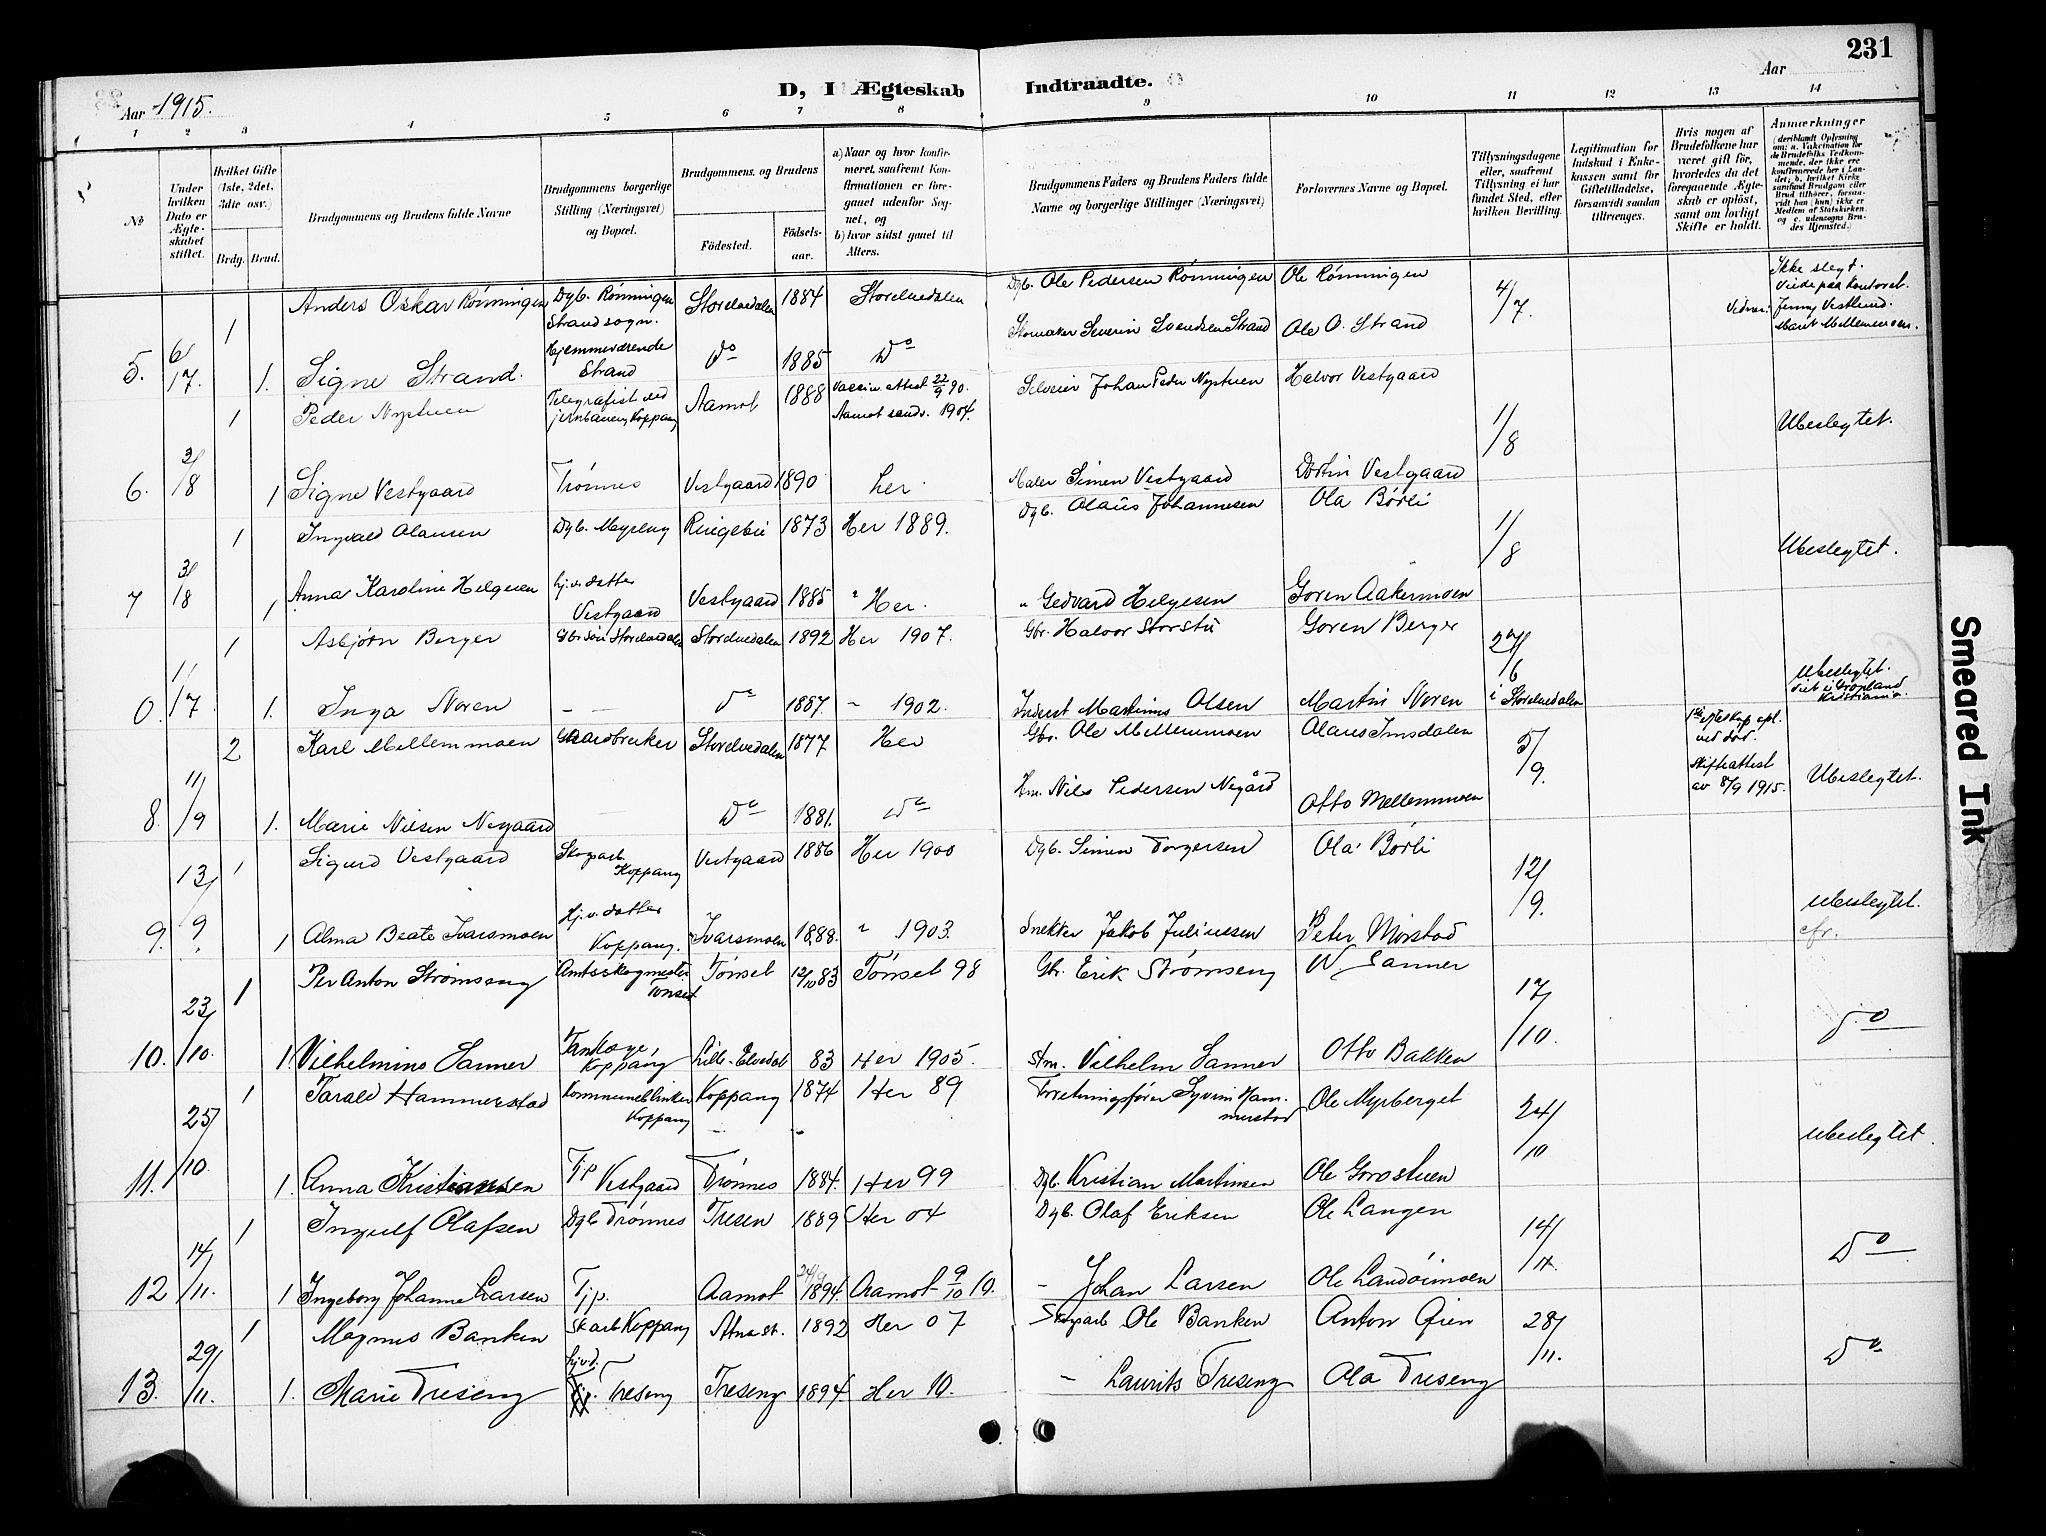 231
D, I Ægteskab Indtraadte.
Aar 1915.
Aar
1 2 3 4 5 6 7 8 9 10 11 12 13 14
No
Under hvilken Dato er Ægteskabet stiftet.
Hvilket Gifte (1ste, 2det, 3die osv.)
Brdg. Brud.
Brudgommens og Brudens fulde Navne
Brudgommens borgerlige Stilling (Næringsvei) og Bopæl.
Brudgommens og Brudens
Födested.
Födselsaar.
a) Naar og hvor konfirmeret, saafremt Konfirmationen er foregaaet udenfor Sognet, og
b) hvor sidst gaaet til Alters.
Brudgommens Faders og Brudens Faders fulde Navne og borgerlige Stillinger (Næringsvei)
Forlovernes Navne og Bopæl.
Tillysningsdagene eller, saafremt Tillysning ei har fundet Sted, efter hvilken Bevilling.
Legitimation for Indskud i Enkekassen samt for Giftetilladelse, forsaavidt saadan tiltrænges.
Hvis nogen af Brudefolkene har været gift för, hvorledes da det foregaaende Ægteskab er oplöst, samt om lovligt Skifte er holdt.
Anmærkninger (deriblandt Oplysning om: a. Vakcination for de Brudefolks Vedkommende, der ikke ere konfirmerede her i Landet; b. hvilket Kirkesamfund Brudgom eller Brud tilhörer, forsaavidt han (hun) ikke er Medlem af Statskirken og c. udensogns Brudes Hjemsted.)
1 Anders Oskar Rönningen Dgb. Rönningen Strand sogn. Storelvedalen 1884 Storelvedalen Dgb. Ole Pedersen Rönningen Ole Rönningen 4/7. Ikke slegt. Viede paa kontoret. Vidner: Jenny Vestlund. Marit Mellemmoen.
5. 6/17. 1. Signe Strand. Hjemmeværende Strand Do 1885 Do Skomaker Severin Svendsen Strand Ole O. Strand
1 Peder Nystuen Telegrafist ved jernbanen, Koppang Aamot 1888 Vaccin attest 22/9 90. Aamot 1904. Selveier Johan Peder Nystuen Halvor Vestgaard 1/8 Ubeslegtet.
6. 3/8 1 Signe Vestgaard Trönnes Vestgaard 1890 her. Maler Simen Vestgaard Vestgaard
1 Ingvald Olausen Dgb. Myreng Ringebu 1873 Her 1889. Dgb. Olaus Johannesen Ola Börli 1/8 Ubeslegtet.
7 3/8 1 Anna Karoline Helgesen hj.v. datter Vestgaard Vestgaard 1885 " Her. " Gedvard Helgesen Goren Aakermoen
1 Asbjørn Berger Gbr sön Storelvedalen Storelvedalen 1892 Her 1907. Gbr. Halvor Storstu Goren Berger 27/6 i Storelvedalen Ubeslegtet. Viet i Grönland Kristiania.
0. 1/17 1. Inga Noren — — Do 1887. " 1902. Inderst Martinus Olsen Martin Noren
2 Karl Mellemmoen Gaardbruker Storelvedalen 1877 Her Gbr. Ole Mellemmoen Olaus Imsdalen 5/9. 1ste egteskap opl. ved död. Skifteattest av 8/9 1915. Ubeslegtet.
8. 11/9 1. Marie Nilsen Nygaard Do 1881. Do Hm. Nils Pedersen Nygård Otto Mellemmoen
1 Sigurd Vestgaard Skogarb. Koppang Vestgaard 1886 Her 1900 Dgb. Simen Torgersen Ola Börli 12/9. Ubeslegtet. cfr.
9. 13/9. 1 Alma Beate Ivarsmoen Hj.v. datter Koppang. Ivarsmoen 1888. " 1903. Snekker Jakob Juliussen Peter Mörstad
1 Per Anton Strømseng Amtsskogmester Tönset Tönset 12/10 83 Tönset 98 Gbr. Erik Strømseng W. Sanner 17/10. Do
10. 23/10. 1. Vilhelmine Sanner Koppang Lille-Elvedal 83 Her 1905. Stm. Vilhelm Sanner Otto Bakken
1 Tarald Hammerstad Koppang Koppang 1874 Her 89 Forretningsförer Syvini Hammerstad Ole Myrberget 24/10 Ubeslegtet.
11. 25/10. 1. Anna Kristiansen Tjp Vestgaard Trönnes 1884. Her 99 Dgb. Kristian Martinsen Ole Gorostuen
1 Ingulf Olafsen Dgb Trönnes Tresen 1889 Her 04 Dgb. Olaf Eriksen Ole Langen 14/11. Do
12 14/11. 1 Ingeborg Johanne Larsen Tjp. Aamot 1894. Aamot 9/10 10. " Johan Larsen Ole Landöimoen
1 Magnus Banken Sk arb Koppang Atna st. 1892 Her 07 Skogarb Ole Banken Anton Öien 28/11. Do
13. 29/11. 1. Marie Treseng hj.v.d. Treseng Treseng 1894 Her 10. " Laurits Treseng Ola Treseng
Smeared Ink